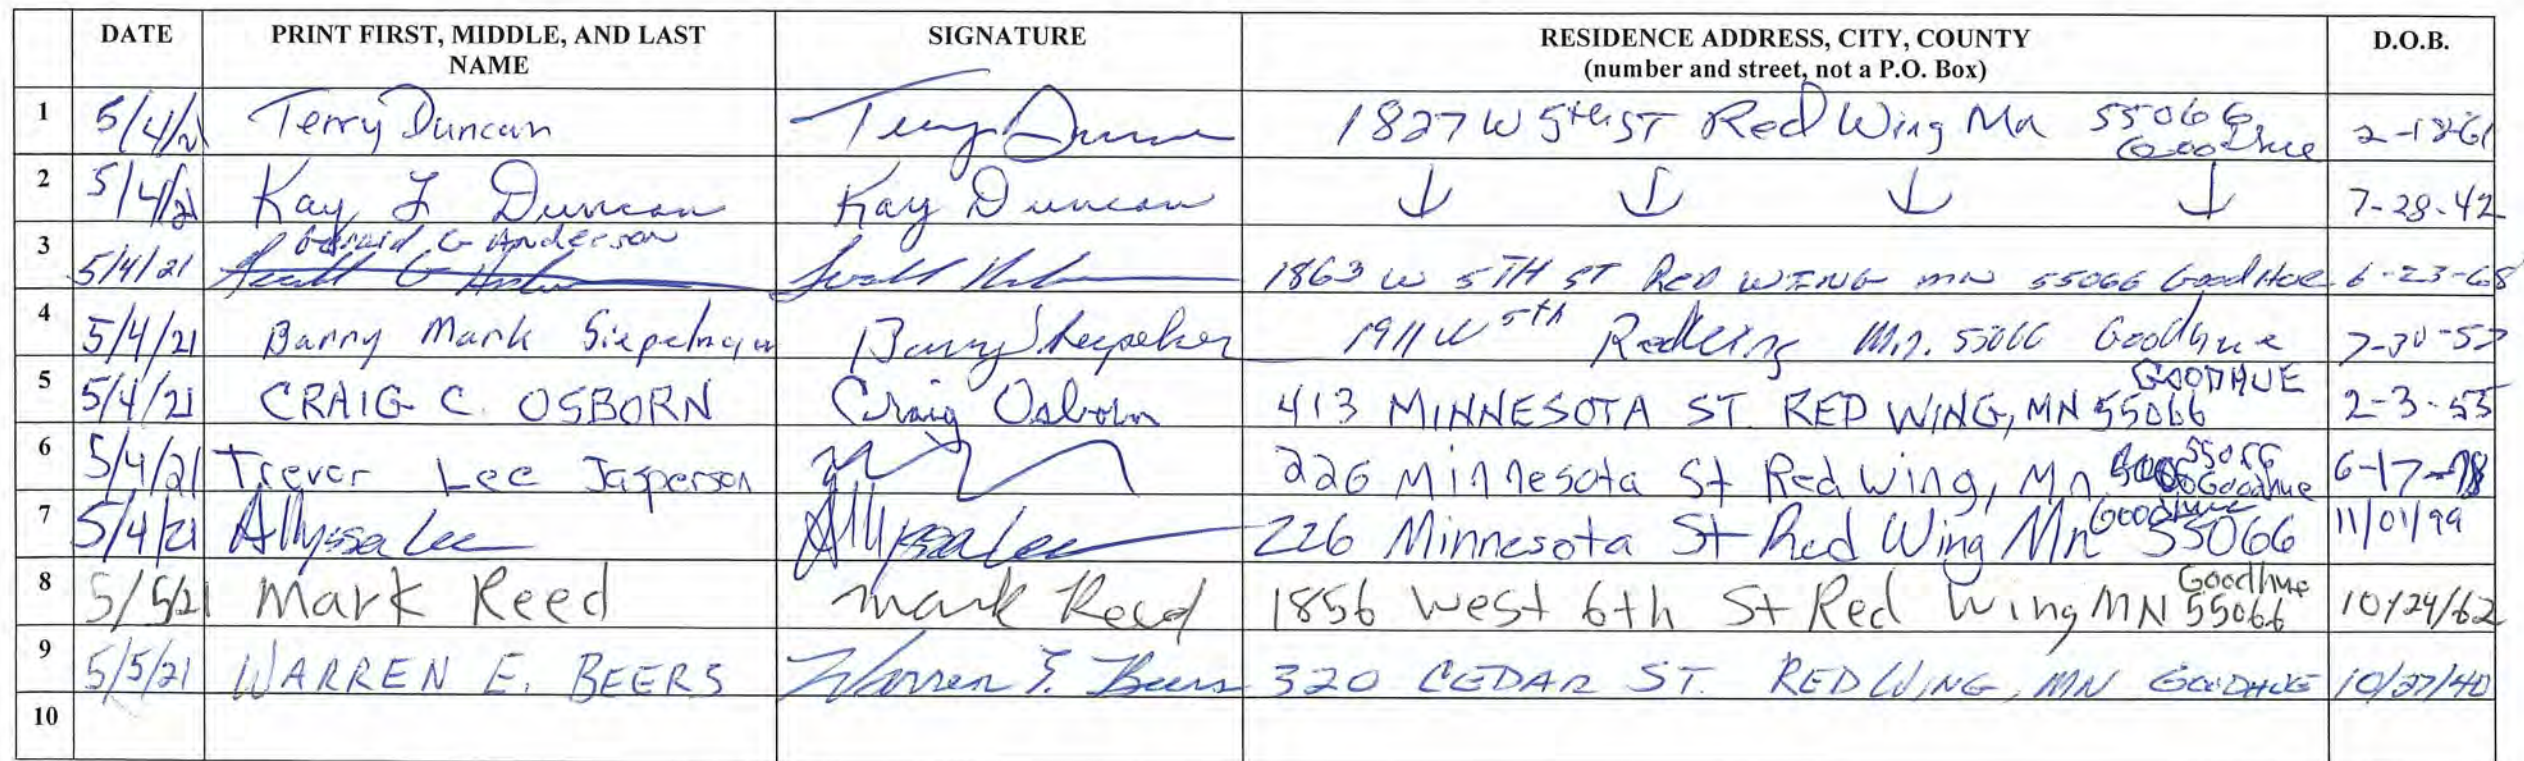 DATE PRINT FIRST, MIDDLE, AND LAST NAME SIGNATURE RESIDENCE ADDRESS, CITY, COUNTY (number and street, not a P.O. Box) D.O.B.
1 5/4/21 Terry Duncan Terry Duncan 1827 W 5th ST Red Wing Mn 55066 Goodhue 2-18-61
2 5/4/21 Kay L Duncan Kay Duncan ↓ ↓ ↓ ↓ 7-28-42
3 5/4/21 G Anderson 1863 W 5TH ST RED WING MN 55066 GoodHue 6-23-68
4 5/4/21 Barry Mark Barry 1911 W 5th Redwing Mn. 55066 Goodhue 7-30-57
5 5/4/21 CRAIG C. OSBORN Craig Osborn 413 MINNESOTA ST. RED WING, MN 55066 GOODHUE 2-3-55
6 5/4/21 Trevor Lee Jasperson 226 Minnesota St Red Wing, Mn 55066 Goodhue 6-17-78
7 5/4/21 Allyssa Lee Allyssa Lee 226 Minnesota St Red Wing Mn Goodhue 55066 11/01/99
8 5/5/21 Mark Reed Mark Reed 1856 West 6th St Red Wing MN Goodhue 55066 10/24/62
9 5/5/21 WARREN E. BEERS Warren E. Beers 320 CEDAR ST. RED WING, MN GOODHUE 10/27/40
10